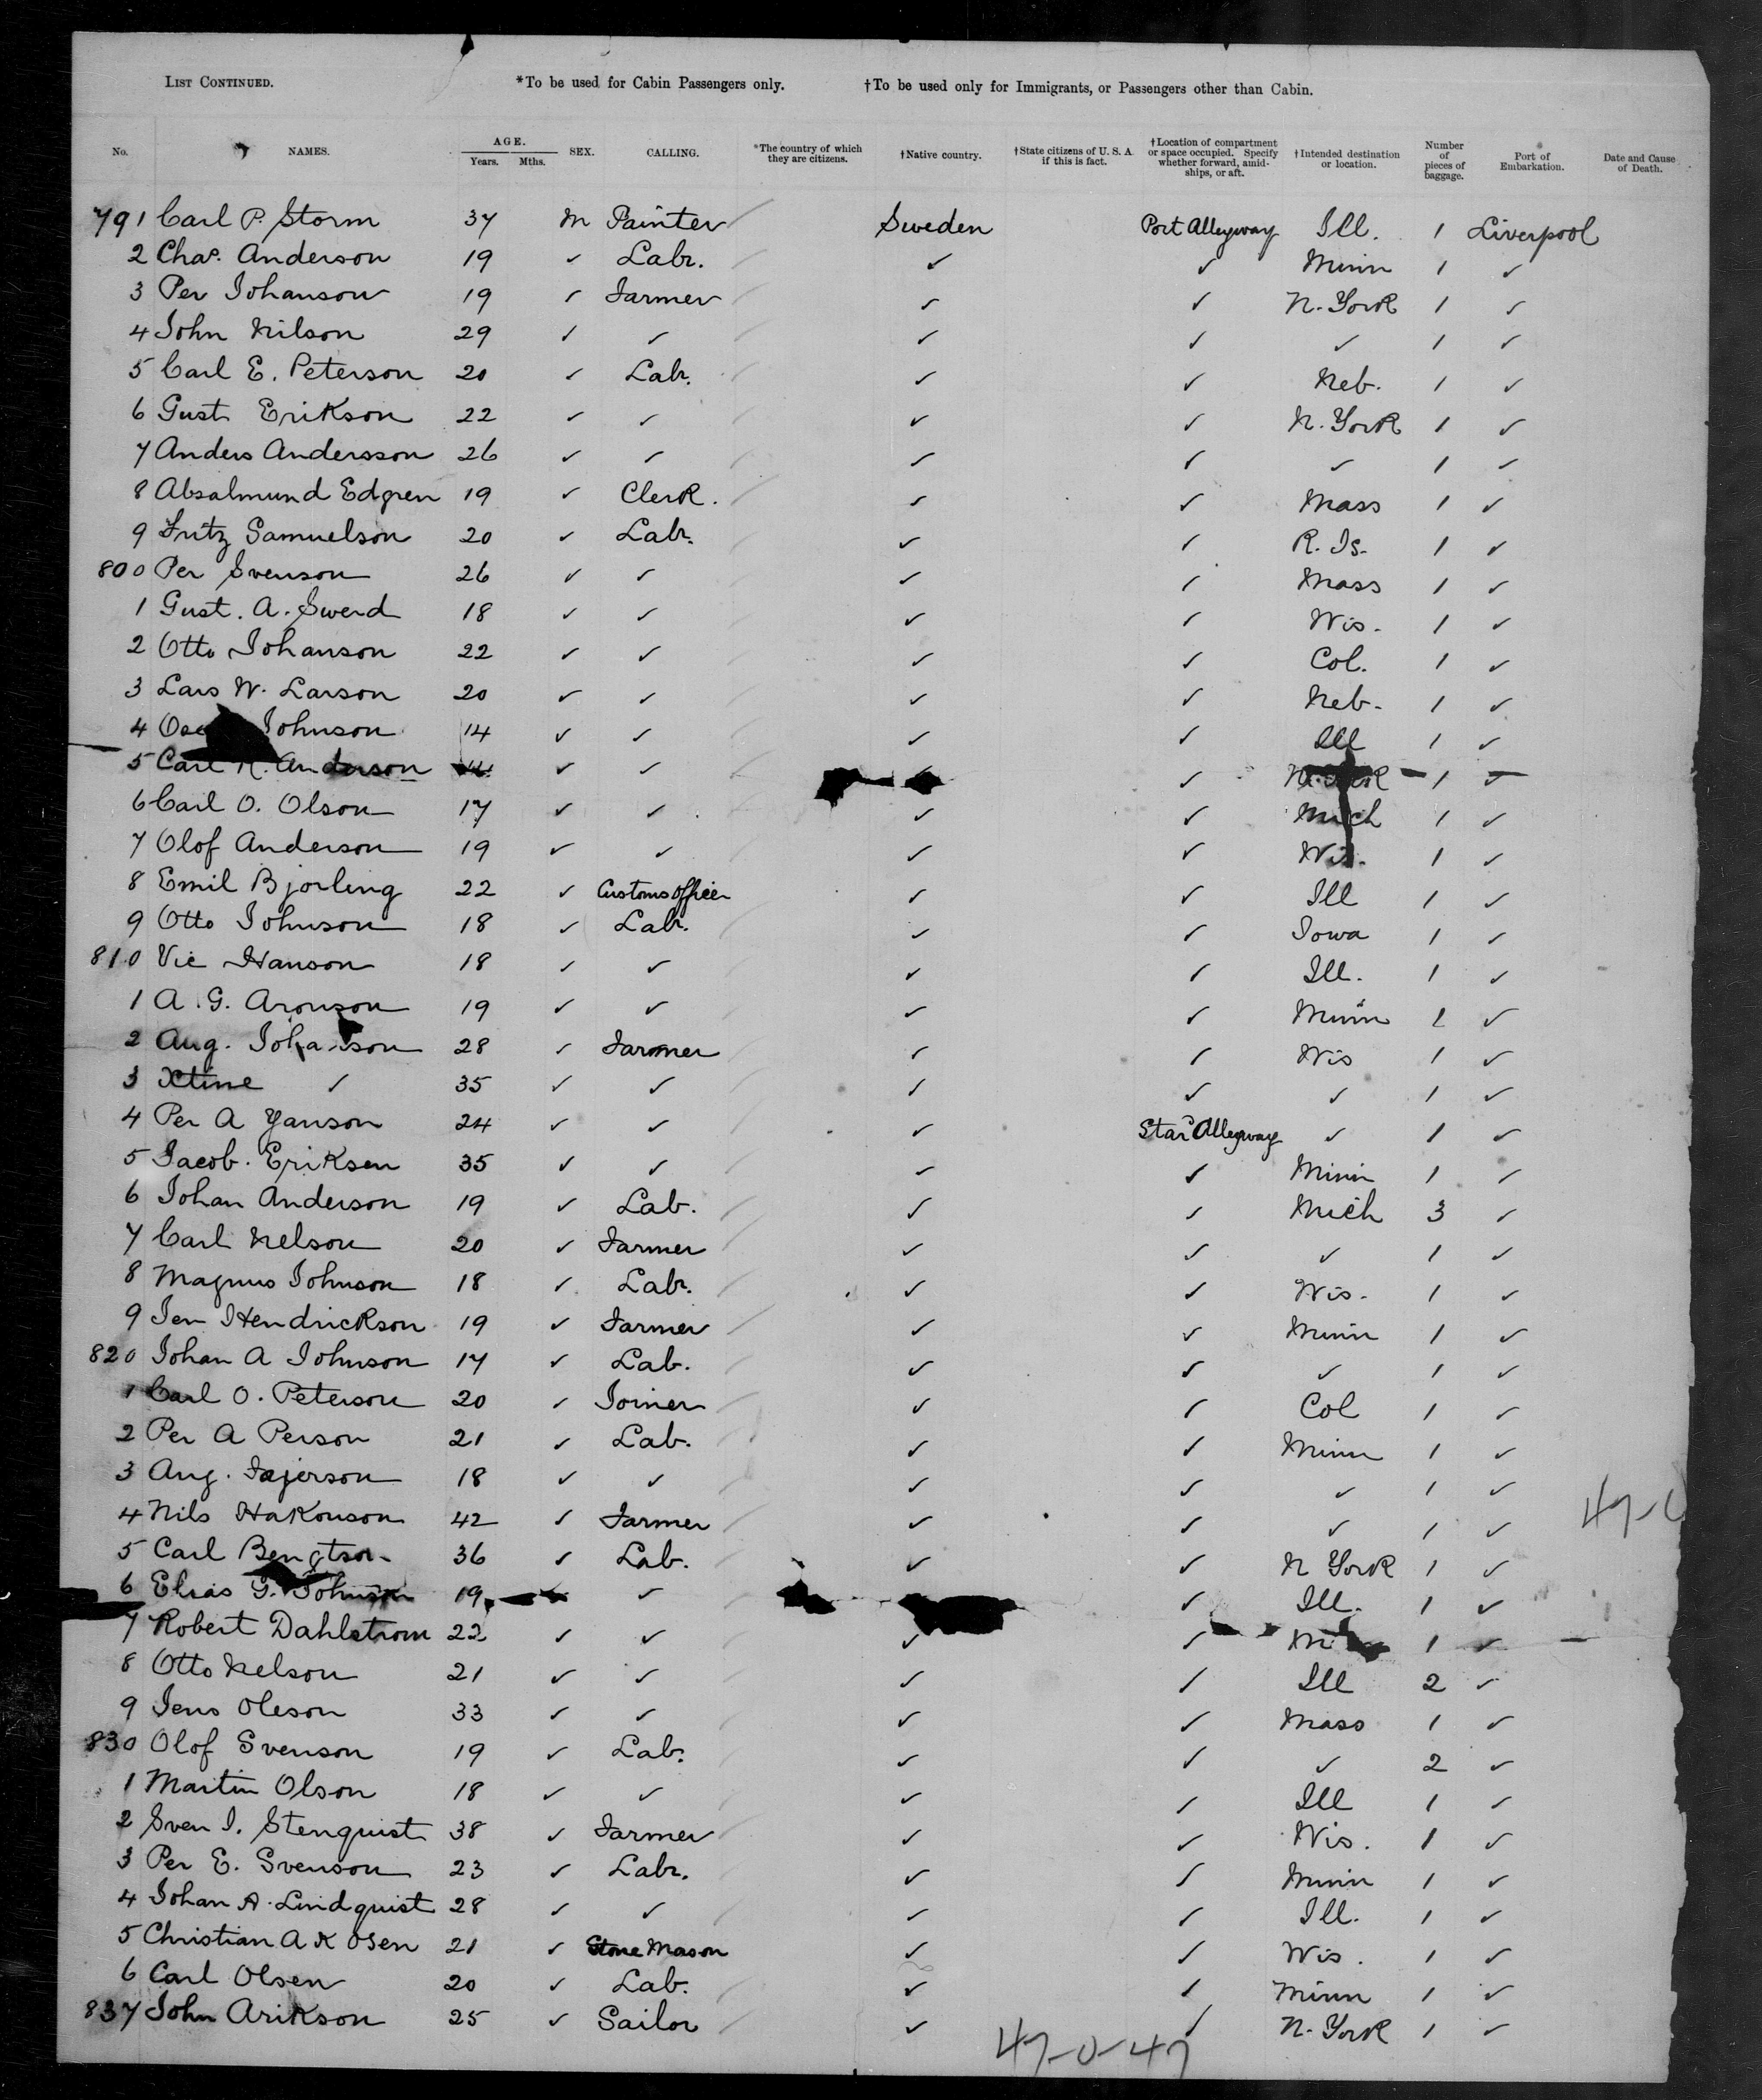 LIST CONTINUED. *To be used for Cabin Passengers only. †To be used only for Immigrants, or Passengers other than Cabin.
No. NAMES. AGE. Years. Mths. SEX. CALLING. *The country of which they are citizens. †Native country. †State citizens of U. S. A. if this is fact. †Location of compartment or space occupied. Specify whether forward, amidships, or aft. †Intended destination or location. Number of pieces of baggage. Port of Embarkation. Date and Cause of Death.
791 Carl P. Storm 37 M Painter Sweden Port Alleyway Ill. 1 Liverpool
2 Chas. Anderson 19 ✓ Labr. ✓ ✓ Minn 1 ✓
3 Per Johanson 19 ✓ Farmer ✓ ✓ N. York 1 ✓
4 John Nilson 29 ✓ ✓ ✓ ✓ ✓ 1 ✓
5 Carl E. Peterson 20 ✓ Labr. ✓ ✓ Neb. 1 ✓
6 Gust Erikson 22 ✓ ✓ ✓ ✓ N. York 1 ✓
7 Anders Andersson 26 ✓ ✓ ✓ ✓ ✓ 1 ✓
8 Absalmund Edgren 19 ✓ Clerk. ✓ ✓ Mass 1 ✓
9 Fritz Samuelson 20 ✓ Labr. ✓ ✓ R. Is. 1 ✓
800 Per Svenson 26 ✓ ✓ ✓ ✓ Mass 1 ✓
1 Gust. A. Swerd 18 ✓ ✓ ✓ ✓ Wis. 1 ✓
2 Otto Johanson 22 ✓ ✓ ✓ ✓ Col. 1 ✓
3 Lars W. Larson 20 ✓ ✓ ✓ ✓ Neb. 1 ✓
4 Johnson 14 ✓ ✓ ✓ ✓ Ill 1 ✓
5 Carl Anderson ✓ ✓ ✓ ✓ 1 ✓
6 Carl O. Olson 17 ✓ ✓ ✓ ✓ Mich 1 ✓
7 Olof Anderson 19 ✓ ✓ ✓ ✓ Wis. 1 ✓
8 Emil Bjorling 22 ✓ Customs Officer ✓ ✓ Ill 1 ✓
9 Otto Johnson 18 ✓ Labr. ✓ ✓ Iowa 1 ✓
810 Vic Hanson 18 ✓ ✓ ✓ ✓ Ill. 1 ✓
1 A. G. Aronson 19 ✓ ✓ ✓ ✓ Minn 1 ✓
2 Aug. Johanson 28 ✓ Farmer ✓ ✓ Wis 1 ✓
3 Xtine ✓ 35 ✓ ✓ ✓ ✓ ✓ 1 ✓
4 Per A Yanson 24 ✓ ✓ ✓ Star Alleyway ✓ 1 ✓
5 Jacob. Eriksen 35 ✓ ✓ ✓ ✓ Minn 1 ✓
6 Johan Anderson 19 ✓ Lab. ✓ ✓ Mich 3 ✓
7 Carl Nelson 20 ✓ Farmer ✓ ✓ ✓ 1 ✓
8 Magnus Johnson 18 ✓ Labr. ✓ ✓ Wis. 1 ✓
9 Jen Hendrickson 19 ✓ Farmer ✓ ✓ Minn 1 ✓
820 Johan A Johnson 17 ✓ Lab. ✓ ✓ ✓ 1 ✓
1 Carl O. Peterson 20 ✓ Joiner ✓ ✓ Col 1 ✓
2 Per A Person 21 ✓ Lab. ✓ ✓ Minn 1 ✓
3 Aug. Fajerson 18 ✓ ✓ ✓ ✓ ✓ 1 ✓
4 Nils Hakonson 42 ✓ Farmer ✓ ✓ ✓ 1 ✓
5 Carl Bengtson 36 ✓ Lab. ✓ ✓ N York 1 ✓
6 Elias G. Johnson 19 ✓ ✓ Ill. 1 ✓
7 Robert Dahlstrom 22 ✓ ✓ ✓ ✓ 1 ✓
8 Otto Nelson 21 ✓ ✓ ✓ ✓ Ill 2 ✓
9 Jens Oleson 33 ✓ ✓ ✓ ✓ Mass 1 ✓
830 Olof Svenson 19 ✓ Lab. ✓ ✓ ✓ 2 ✓
1 Martin Olson 18 ✓ ✓ ✓ ✓ Ill 1 ✓
2 Sven J. Stenquist 38 ✓ Farmer ✓ ✓ Wis. 1 ✓
3 Per E. Svenson 23 ✓ Labr. ✓ ✓ Minn 1 ✓
4 Johan A. Lindquist 28 ✓ ✓ ✓ ✓ Ill. 1 ✓
5 Christian A K Osen 21 ✓ Stone Mason ✓ ✓ Wis. 1 ✓
6 Carl Olsen 20 ✓ Lab. ✓ ✓ Minn 1 ✓
837 John Arikson 25 ✓ Sailor ✓ ✓ N. York 1 ✓
47-0-47